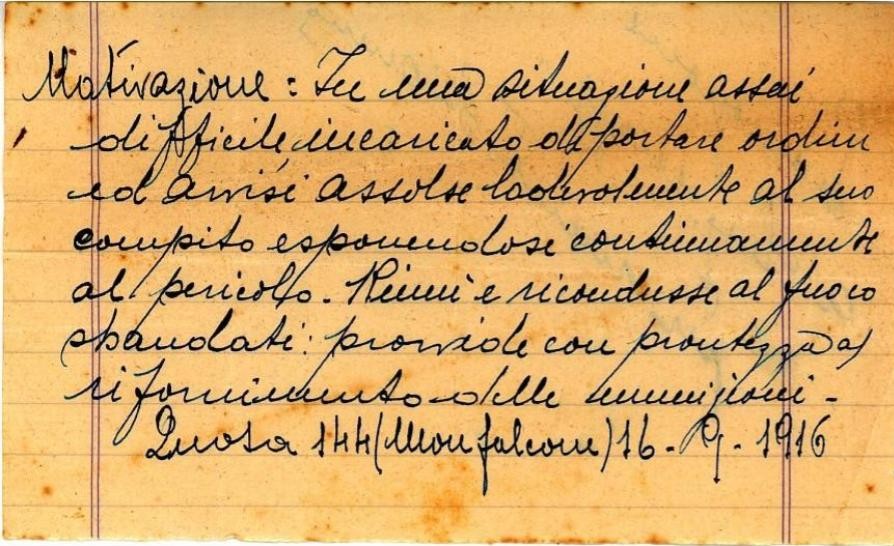 Motivazione: In una situazione assai
difficile incaricato di portare ordini
ed avvisi assolse lodevolmente al suo
compito esponendosi continuamente
al pericolo. Riunì e ricondusse al fuoco
sbandati: provvide con prontezza al
rifornimento delle munizioni -
Quota 144 (Monfalcone) 16 - 9 - 1916